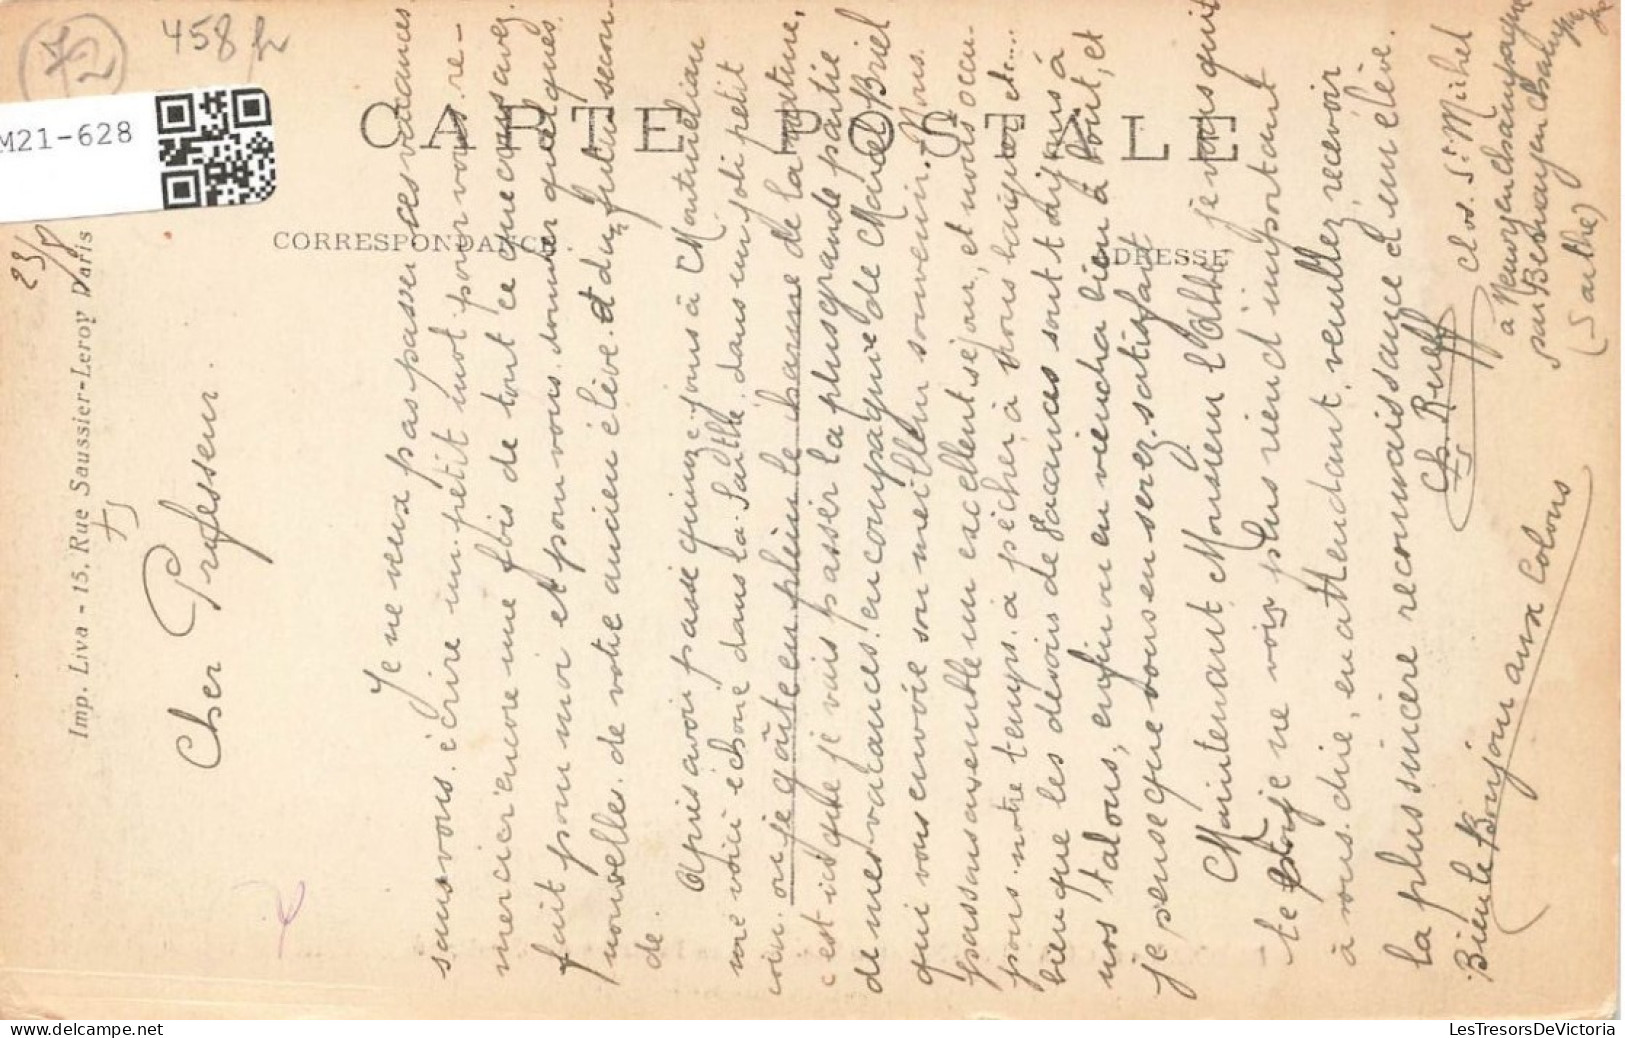 72
458 fr
M21-628
CARTE POSTALE
CORRESPONDANCE
ADRESSE
Imp. Liva - 15, Rue Saussier-Leroy Paris
23/8
Cher Professeur.
Je ne veux pas passer ces vacances
sans vous écrire un petit mot pour vous re-
mercier encore une fois de tout ce que vous avez
fait pour moi et pour vous donner quelques
nouvelles de votre ancien élève et du futur secon-
de.
Après avoir passé quinze jours à Montudliau
me voici échoué dans la Sarthe dans un joli petit
coin où je gâte en plein le charme de la nature,
c'est ici que je vais passer la plus grande partie
de mes vacances en compagnie de Marcel Briel
qui vous envoie son meilleur souvenir. Nous
passons ensemble un excellent séjour, et nous occu-
pons notre temps à pêcher, à nous baigner etc....
bien que les devoirs de vacances sont toujours à
nos talons, enfin on en viendra bien à bout, et
je pense que vous en serez satisfait
Maintenant Monsieur l'Abbé je vous quit
te je ne vois plus rien d'important
à vous dire, en attendant veuillez recevoir
la plus sincère reconnaissance d'un élève.
Ch. Rueff
Bien le Bonjour aux Colons
Clos. St Michel
à Neuvy en champagne
par Bernay en champagne
(Sarthe)
LesTresorsDeVictoria